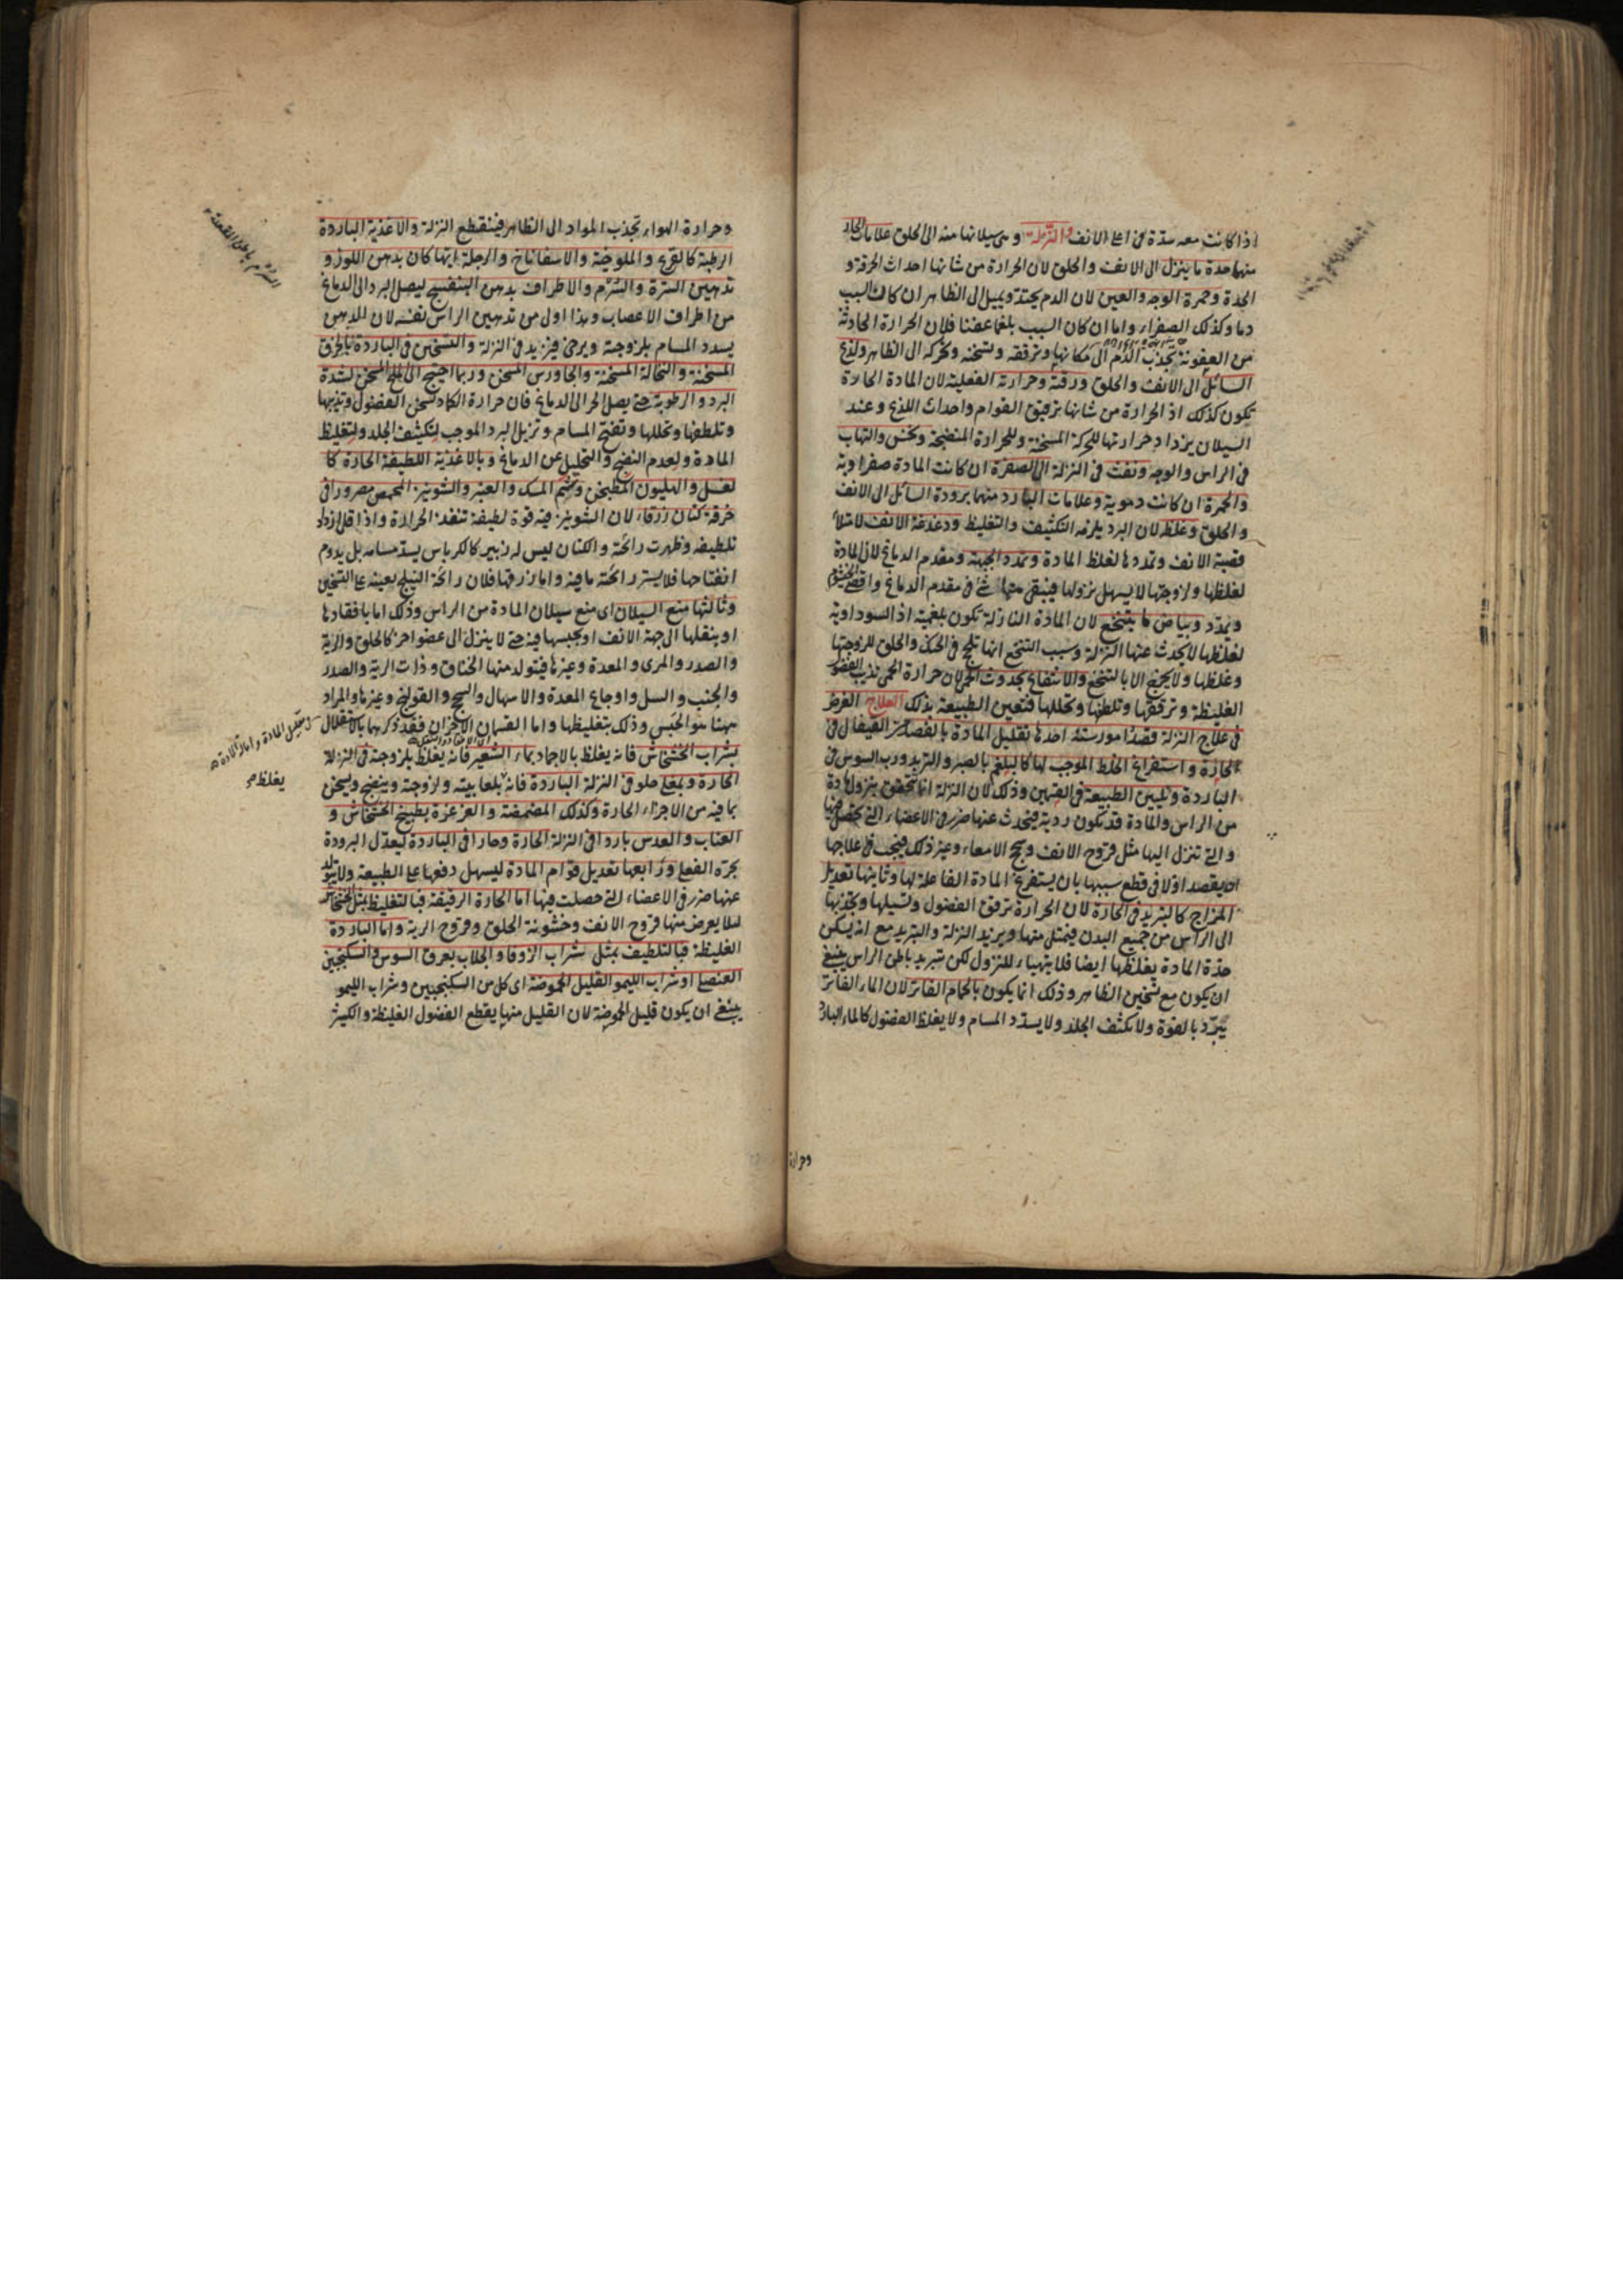 اذا كانت معه سدة فى اعلى الانف والنزلة وهى سيلانها منه الى الحلق علامات الحار
منها حدة ما ينزل الى الانف والحلق لان الحرارة من شانها احداث الحرقة و
الحدة وحمرة الوجه والعين لان الدم يحتد ويميل الى الظاهر ان كان السبب
دما وكذلك الصفراء واما ان كان السبب بلغما عفنا فلان الحرارة الحادثة
من العفونة تجذب الدم الى مكانها وترققه وتسخنه وتحركه الى الظاهر ولذع
السائل الى الانف والحلق ورقته وحرارته الفعلية لان المادة الحارة
تكون كذلك اذ الحرارة من شانها ترقيق القوام واحداث اللذع وعند
السيلان يزداد حرارتها للحركة المسخنة وللحرارة المنضجة ونخس والتهاب
فى الراس والوجه ونفث فى النزلة الى الصفرة ان كانت المادة صفراوية
والحمرة ان كانت دموية وعلامات البارد منهما برودة السائل الى الانف
والحلق وغلظه لان البرد يلزمه التكثيف والتغليظ ودغدغة الانف لامتلاء
قصبة الانف وتمددها لغلظ المادة وتمدد الجبهة ومقدم الدماغ لان المادة
لغلظها ولزوجتها لا يسهل نزولها فيبقى منها شئ فى مقدم الدماغ واقصى الخيشوم
ويمدد وبياض ما يتنخع لان المادة النازلة تكون بلغمية اذ السوداوية
لغلظها لا يحدث عنها النزلة وسبب التنخع انها تلحج فى الحنك والحلق للزوجتها
وغلظها ولا يخرج الا بالتنخع والانتفاع بحدوث الحمى لان حرارة الحمى تذيب الفضول
الغليظة وترققها وتلطفها وتحللها فتعين الطبيعة بذلك العلاج الغرض
فى علاج النزلة قصد امور ستة احدها تقليل المادة بالفصد من القيفال فى
الحارة واستفراغ الخلط الموجب لها كالبلغم بالصبر والتربد ورب السوس فى
الباردة وتليين الطبيعة فى القسمين وذلك لان النزلة انما تتحقق بنزول مادة
من الراس والمادة قد تكون ردية فيحدث عنها ضرر فى الاعضاء التى تحصل فيها
والتى تنزل اليها مثل قروح الانف وسحج الامعاء وغير ذلك فيجب فى علاجها
ان يقصد اولا فى قطع سببها بان يستفرغ المادة الفاعلة لها وثانيها تعديل
المزاج كالتبريد فى الحارة لان الحرارة ترقق الفضول وتسيلها وتجذبها
الى الراس من جميع البدن فيمتلى منها ويزيد النزلة والتبريد مع انه يسكن
حدة المادة يغلظها ايضا فلا يتهياء للنزول لكن تبريد باطن الراس ينبغى
ان يكون مع تسخين الظاهر وذلك انما يكون بالحمام الفاتر لان الماء الفاتر
يبرد بالقوة ولا يكثف الجلد ولا يسدد المسام ولا يغلظ الفضول كالماء البارد
وحرارة
وحرارة الهواء تجذب المواد الى الظاهر فينقطع النزلة والاغذية الباردة
الرطبة كالقرع والملوخية والاسفاناخ والرجلة ايها كان بدهن اللوز و
تدهين السرة والسرم والاطراف بدهن البنفسج ليصل البرد الى الدماغ
من اطراف الاعصاب وهذا اولى من تدهين الراس نفسه لان الدهن
يسدد المسام بلزوجته ويرخى فيزيد فى النزلة والتسخين فى الباردة بالخرق
المسخنة والنخالة المسخنة والجاورس المسخن وربما احتيج الى الملح المسخن لشدة
البرد والرطوبة حتى يصل الحر الى الدماغ فان حرارة الكماد تسخن الفضول وتذيبها
وتلطفها وتحللها وتفتح المسام وتزيل البرد الموجب لتكثف الجلد ولتغليظ
المادة ولعدم النضج والتحليل عن الدماغ وبالاغذية اللطيفة الحارة كا
لعسل والهليون المطبخن وشم المسك والعنبر والشونيز المحمص مصرورا فى
خرقة كتان زرقاء لان الشونيز فيه قوة لطيفة تنفذ الحرارة واذا قلى ازداد
تلطيفه وظهرت رائحته والكتان ليس له زبير كالكرباس يسد مسامه بل يدوم
انفتاحها فلا يستر رائحته ما فيه واما زرقها فلان رائحة النيلج يعينه على التسخين
وثالثها منع السيلان اى منع سيلان المادة من الراس وذلك اما بافقادها
او بنقلها الى جهة الانف او بحبسها فيه حتى لا ينزل الى عضو اخر كالحلق والرية
والصدر والمرى والمعدة وغيرها فيتولد منها الخناق وذات الرية والصدر
والجنب والسل واوجاع المعدة والاسهال والسحج والقولنج وغيرها والمراد
ههنا هو الحبس وذلك بتغليظها واما القسمان الاخران فقد ذكرهما بالاستقلال
بشراب الخشخاش فانه يغلظ بالاجماد بماء الشعير فانه يغلظ بلزوجته فى النزلة
الحارة وبمغلى حلو فى النزلة الباردة فانه بلعابيته ولزوجته وينضج ويسخن
بما فيه من الاجزاء الحارة وكذلك المضمضة والغرغرة بطبيخ الخشخاش و
العناب والعدس باردا فى النزلة الحارة وحارا فى الباردة ليعدل البرودة
بحره الفعلى ورابعها تعديل قوام المادة ليسهل دفعها على الطبيعة ولا يتولد
عنها ضرر فى الاعضاء التى حصلت فيها اما الحارة الرقيقة فبالتغليظ بمثل الخشخاش
لئلا يعرض منها قروح الانف وخشونة الحلق وقروح الرية واما الباردة
الغليظة فبالتلطيف بمثل شراب الزوفا والجلاب بعرق السوس والسكنجبين
العنصلى او شراب الليمو القليل الحموضة اى كل من السكنجبين وشراب الليمو
ينبغى ان يكون قليل الحموضة لان القليل منها يقطع الفضول الغليظة والكثير
يغلظ